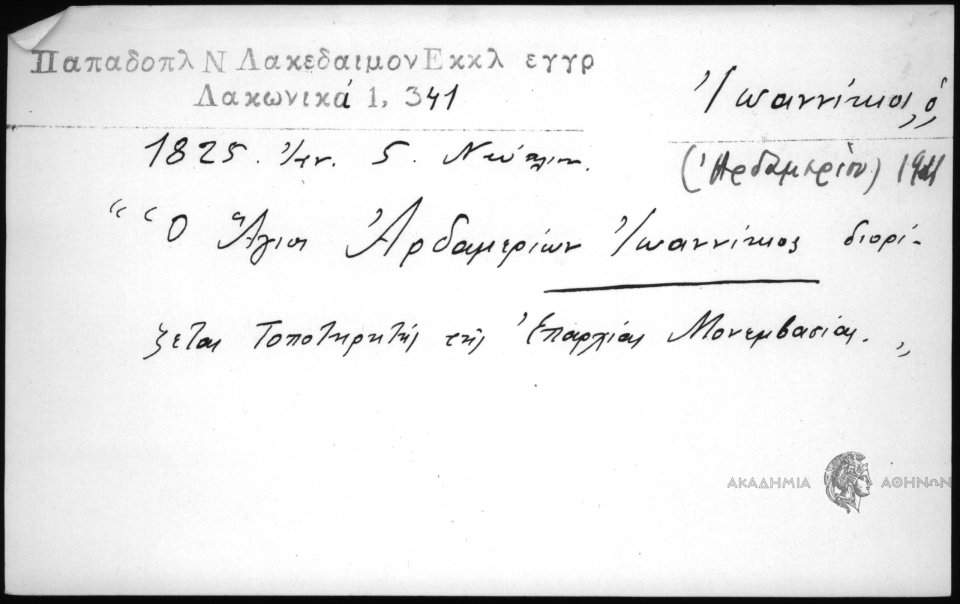 Παπαδοπλ Ν Λακεδαιμον Εκκλ εγγρ
Λακωνικά 1, 341
Ἰωαννίκιος, ὁ,
(Ἀρδαμερίου)
1825. Ἰαν. 5. Ναύπλιον.
"Ὁ Ἅγιος Ἀρδαμερίων Ἰωαννίκιος διορί-
ζεται Τοποτηρητής τῆς Ἐπαρχίας Μονεμβασίας."
ΑΚΑΔΗΜΙΑ ΑΘΗΝΩΝ